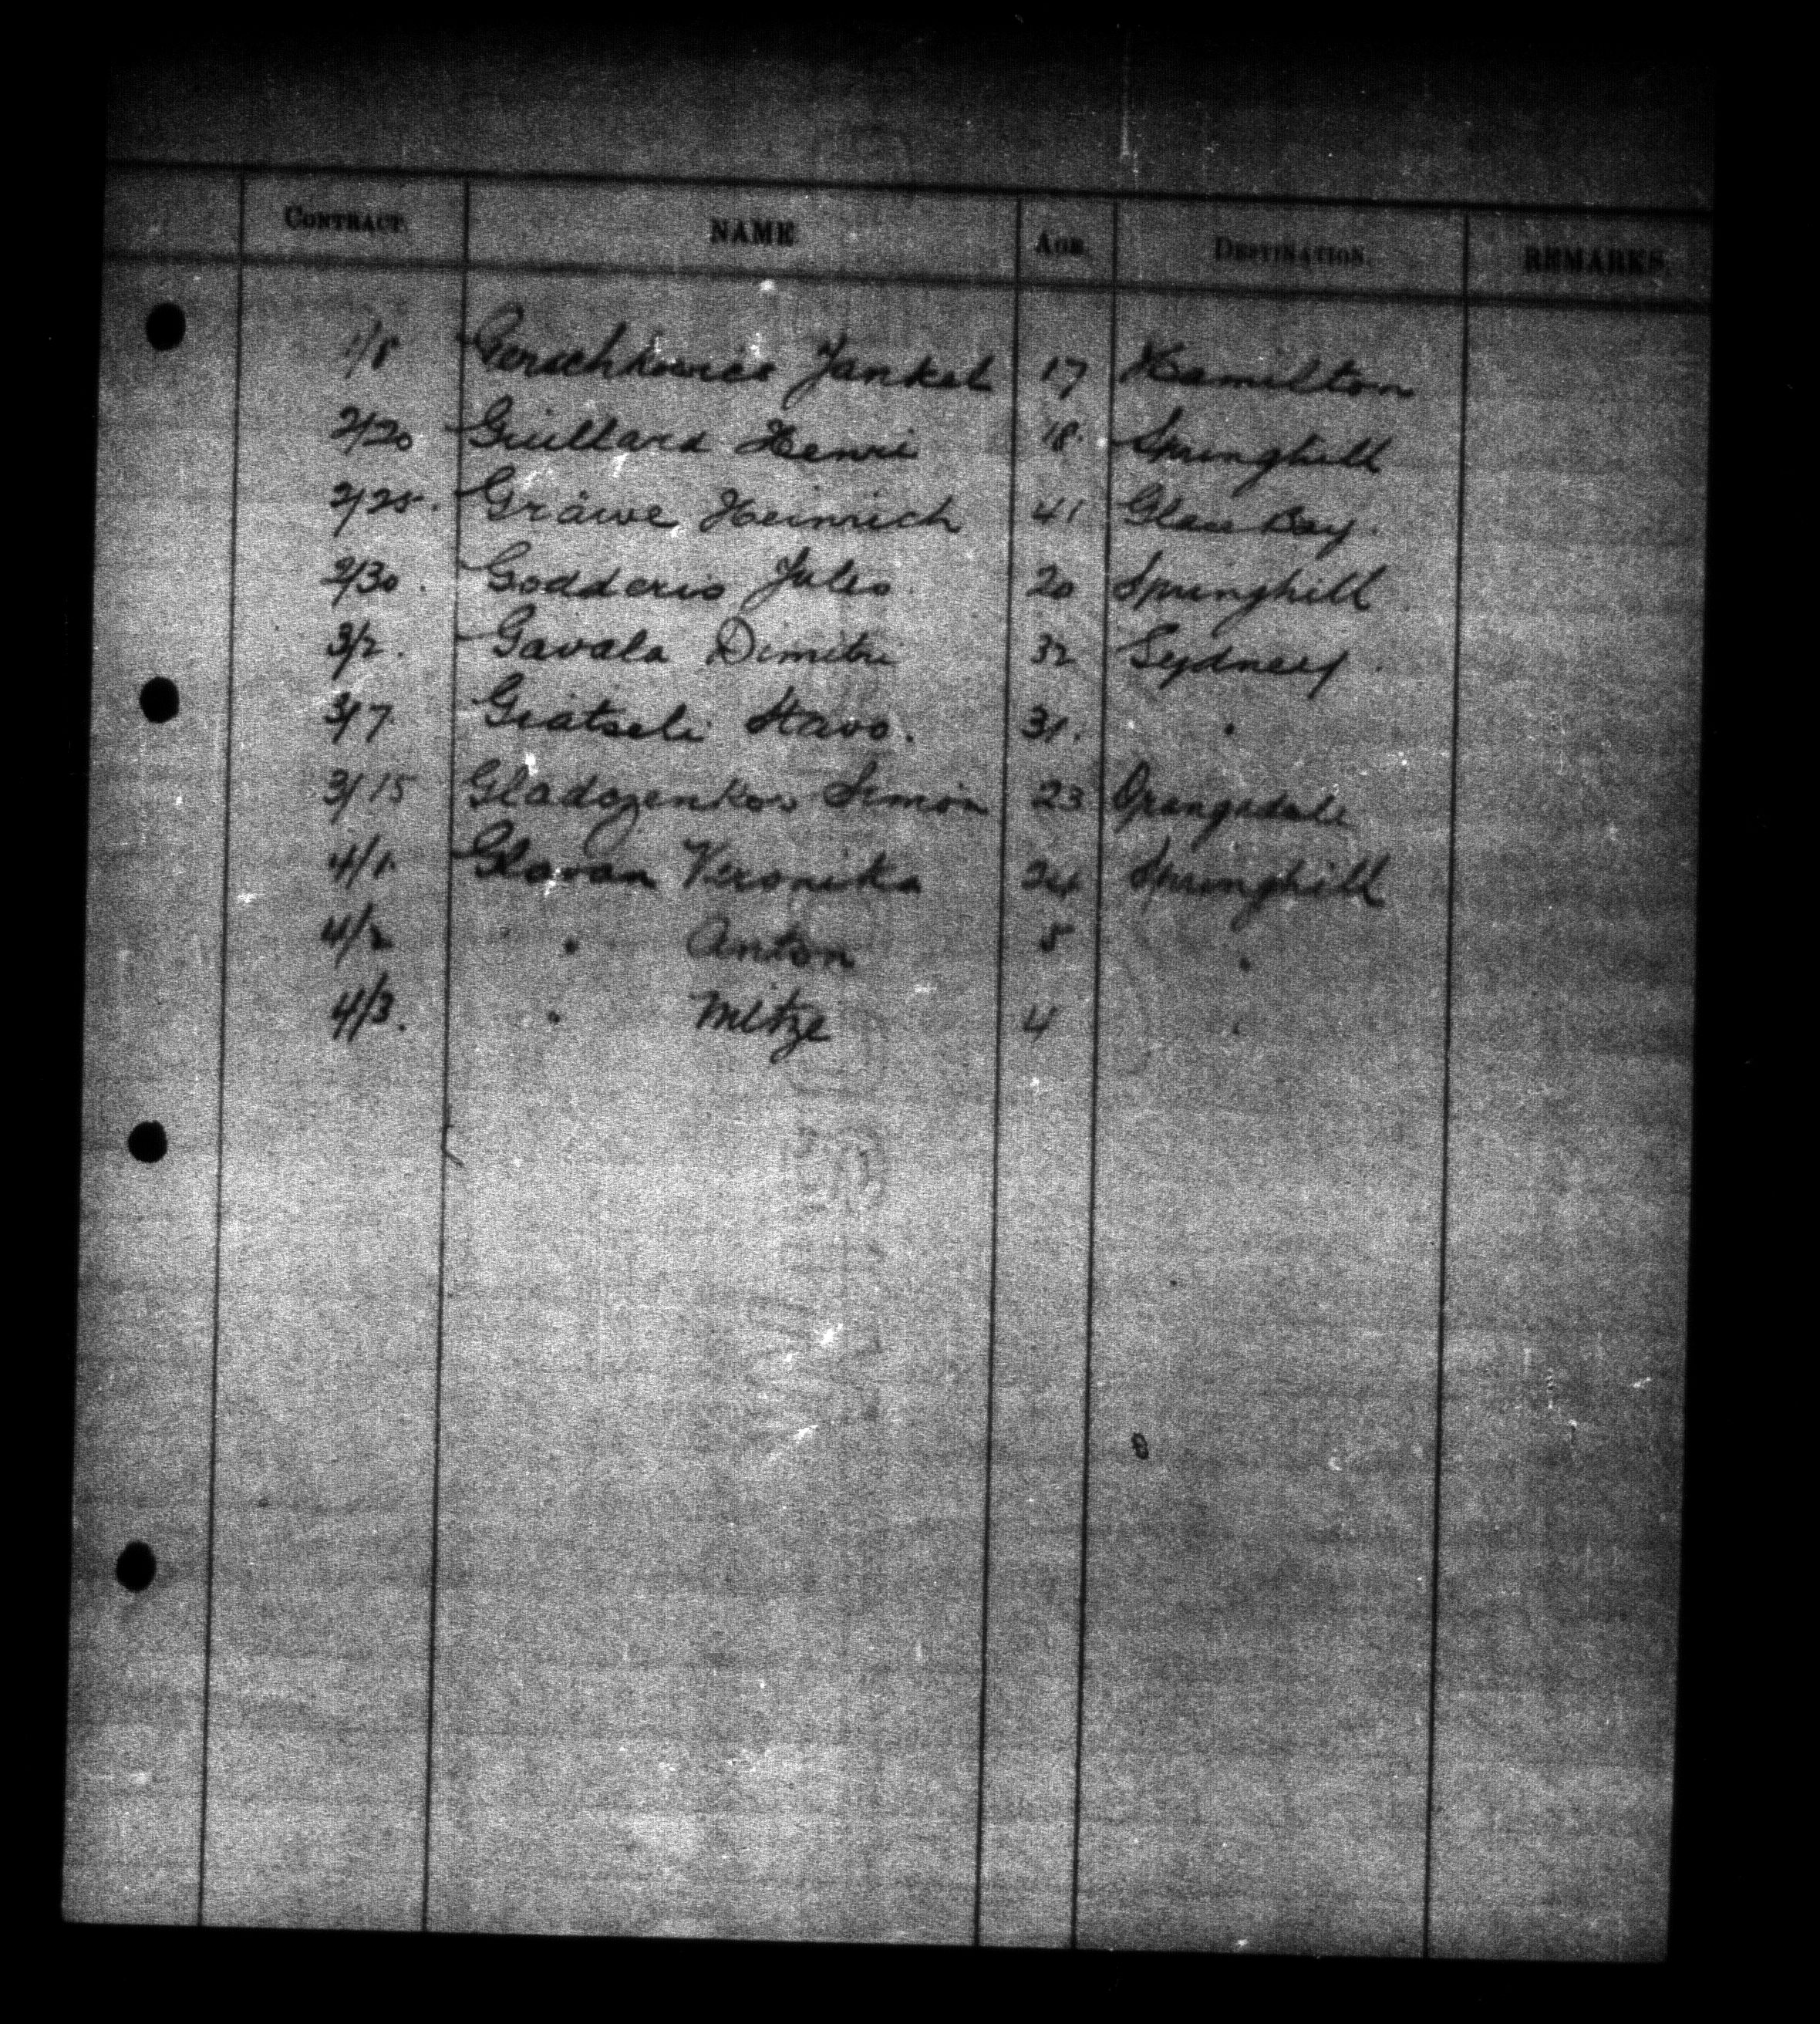 CONTRACT. NAME AGE. DESTINATION. REMARKS.
1/8 Gerschkowics Jankel 17 Hamilton
2/20 Guillard Henri 18. Springhill
2/25. Gräwe Heinrich 41 Glace Bay.
2/30. Godderis Jules. 20 Springhill
3/2. Gavala Dimitri 32 Sydney.
3/7 Giatseli Stavo. 31. "
3/15 Gladozenkow Simon 23 Orangedale
4/1 Glavan Veronika 24 Springhill
4/2 " Anton 5 "
4/3. " Mitze 4 "